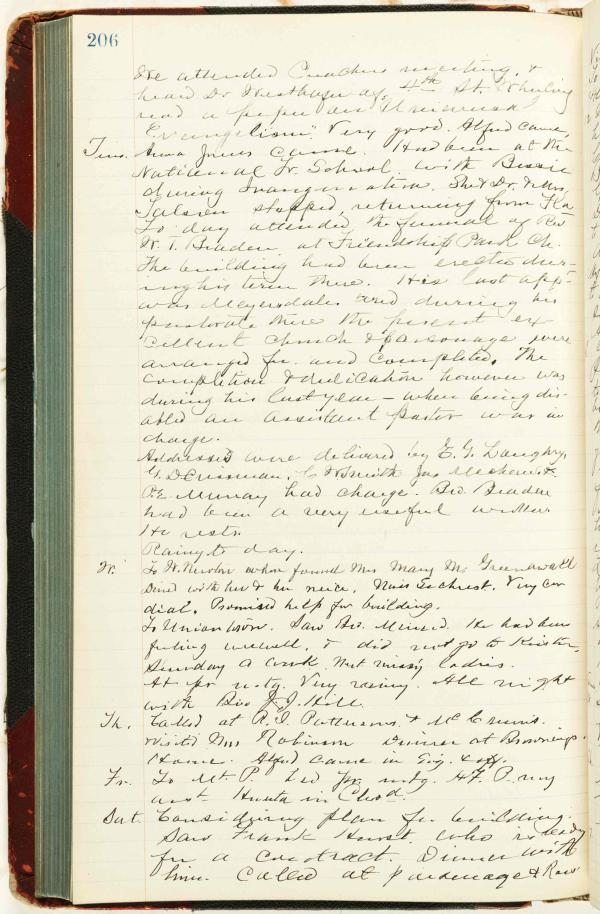 206
We attended Preachers meeting, &
heard Dr Westhafer of 4th St. Wheeling
read a paper on "Universal
Evangelism." Very good. Alfred came,
Tues. Anna Jones came. Had been at the
National Tr. School, with Bessie
during Inauguration. She & Dr. & Mrs.
stopped, returning from Fla
To day attended the funeral of Rev
W. T. Braden at Friendship Park Ch.
The building had been erected dur-
ing his term there. His last app't
was Meyersdale and during his
pastorate there the present ex
cellent church & parsonage were
arranged for and completed. The
completion & dedication however was
during his last year – when being dis-
abled an assistant pastor was in
charge.
Addresses were delivered by E. G. Loughry,
G. D Crissman, Smith Jas Mechem. &
P.E. Murray had charge. Bro Braden
had been a very useful
He rests.
Rainy to day.
W. To W. Newton where found Mrs Mary Mc Greenawalt
Dined with her & her neice, Miss Sechrest. Very cor
dial. Promised help for building.
To Uniontown. Saw Bro. He had been
feeling unwell, & did not go to
Sunday a week. Met ladies.
At pr mtg. Very rainy. All night
with Bro J. J. Hill.
Th. Called at R. J. Pattersons & McCrums.
Visited Mrs Robinson Dinner at Brownings
Home. Alfred came in Evg. & off.
Fr. To Mt. P. Led pr. mtg. H. F. P. my
asst. in
Sat. Considering plan for building.
Saw Frank Hurst. Who is ready
for a contract. Dinner with
him. Called at parsonage &